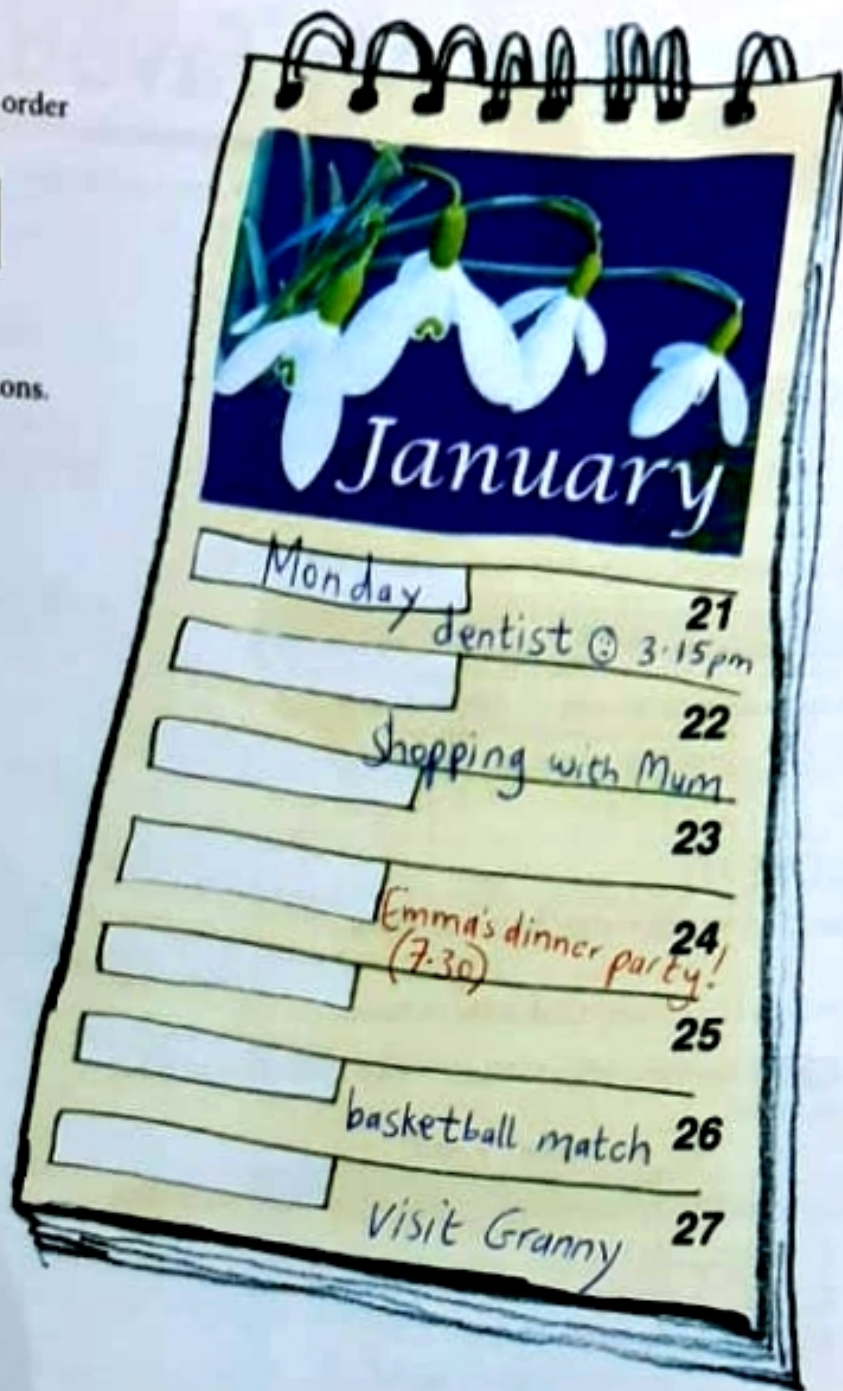 order
ons.
January
Monday
21
dentist @ 3.15pm
22
Shopping with Mum
23
24
Emma's dinner party!
(7.30)
25
26
basketball match
27
Visit Granny